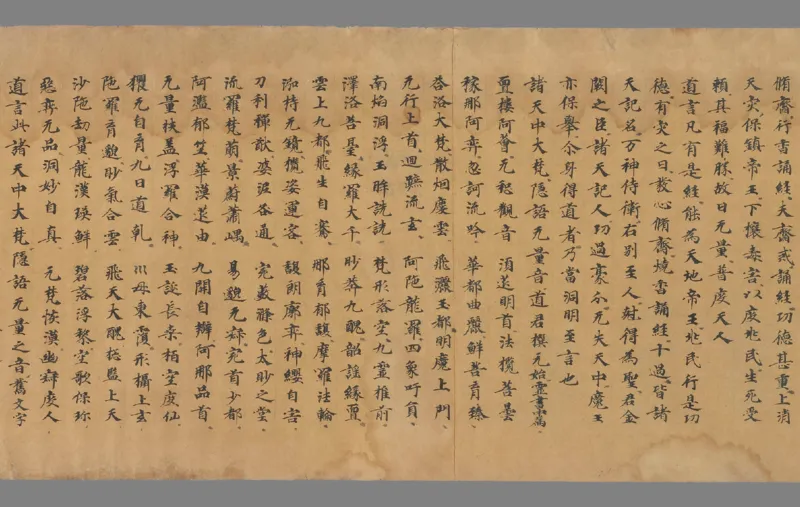 脩齋行香誦經夫齋戒誦經功德甚重上消
天災保鎮帝王下攘毒害以度兆民生死受
賴其福難勝故曰无量普度天人
道言凡有是經能為天地帝王兆民行是功
德有灾之日發心脩齋燒香誦經十過皆諸
天記名万神侍衛右別至人尅得為聖君金
闕之臣諸天記人功過豪分无失天中魔王
亦保舉尒身得道者乃當洞明至言也
諸天中大梵隱語无量音道君撰元始靈書中篇
亶婁阿薈无惒觀音 須延明首法攬菩曇
稼那阿奕忽訶流吟 華都曲麗鮮菩育臻
荅洛大梵散烟慶雲 飛灑玉都明魔上門
无行上首迴蹠流玄 阿陁龍羅四象吁員
南焰洞浮玉眸詵詵 梵形落空九靈推前
澤洛菩臺緣羅大千 眇莽九醜韶謡緣邅
雲上九都飛生自騫 那育郁馥摩羅法輪
泇持无鏡攬姿運容 馥朗廓奕神纓自宮
刀利禪猷婆泥咎通 宛藪滌色太眇之堂
流羅梵萠景蔚蕭嵎 易邈无寂宛首少都
阿灆郁竺華漠筵由 九開自辯阿那品首
无量扶蓋浮羅合神 玉誕長桑栢空度仙
獲无自育九日道乹 巛母東覆形攝上玄
陁羅育邈眇氣合雲 飛天大醜揔監上天
沙陁劫量龍漢瑛鮮 碧落浮黎空歌保珎
惡奕无品洞妙自真 元梵恢漠幽寂度人
道言此諸天中大梵隱語无量之音舊文字